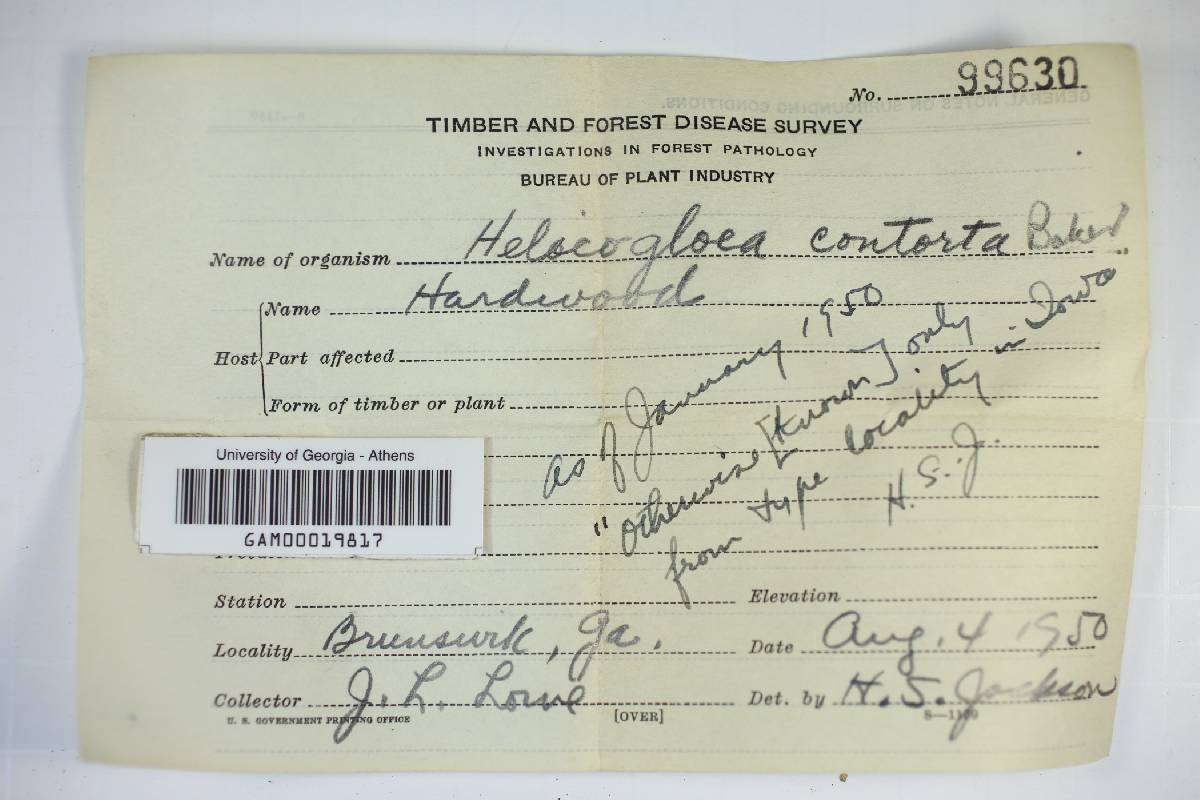 No. 99630
TIMBER AND FOREST DISEASE SURVEY
INVESTIGATIONS IN FOREST PATHOLOGY
BUREAU OF PLANT INDUSTRY
Name of organism Helicogloea contorta Baker
Host
Name Hardwood
Part affected
Form of timber or plant
as of January 1950
"otherwise [known] only
from type locality in Iowa"
H. S. J.
University of Georgia - Athens
GAM00019817
Station
Elevation
Locality Brunswik, Ga.
Date Aug. 4 1950
Collector J. L. Lowe
Det. by H. S. Jackson
U. S. GOVERNMENT PRINTING OFFICE
[OVER]